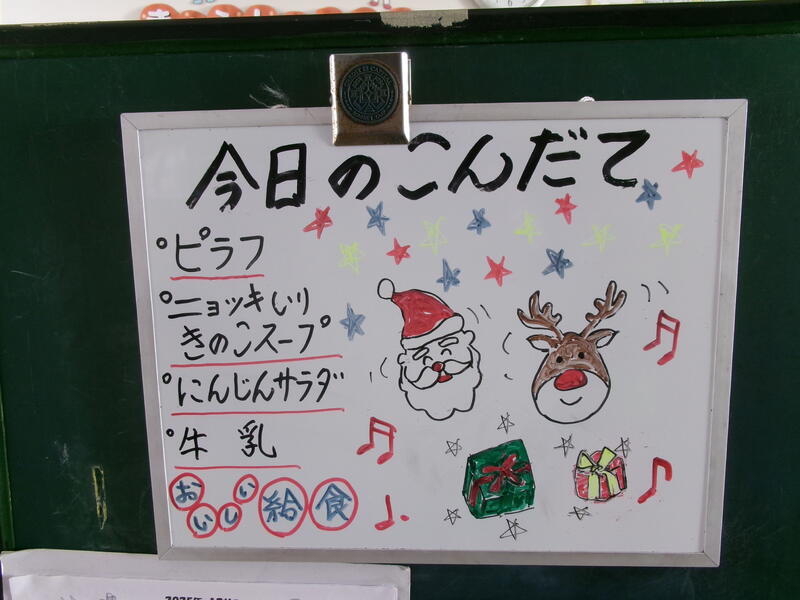 今日のこんだて
ピラフ
ニョッキいり
きのこスープ
にんじんサラダ
牛乳
おいしい給食